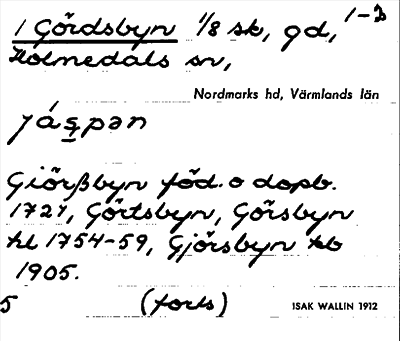 1 Gördsbyn 1/8 sk, gd, 1-3
Holmedals sn,
Nordmarks hd, Värmlands län
jás̱pən
Giörßbyn föd. o dopb.
1721, Görtsbyn, Görsbyn
hl 1754-59, Gjörsbyn kb
1905.
5 (forts) ISAK WALLIN 1912